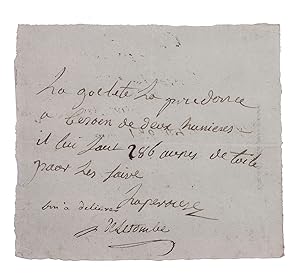 La goelete La prudence
a besoin de deux hunieres
il lui faut 286 aunes de toile
pour les faire
Laperouse
bon a delivrer